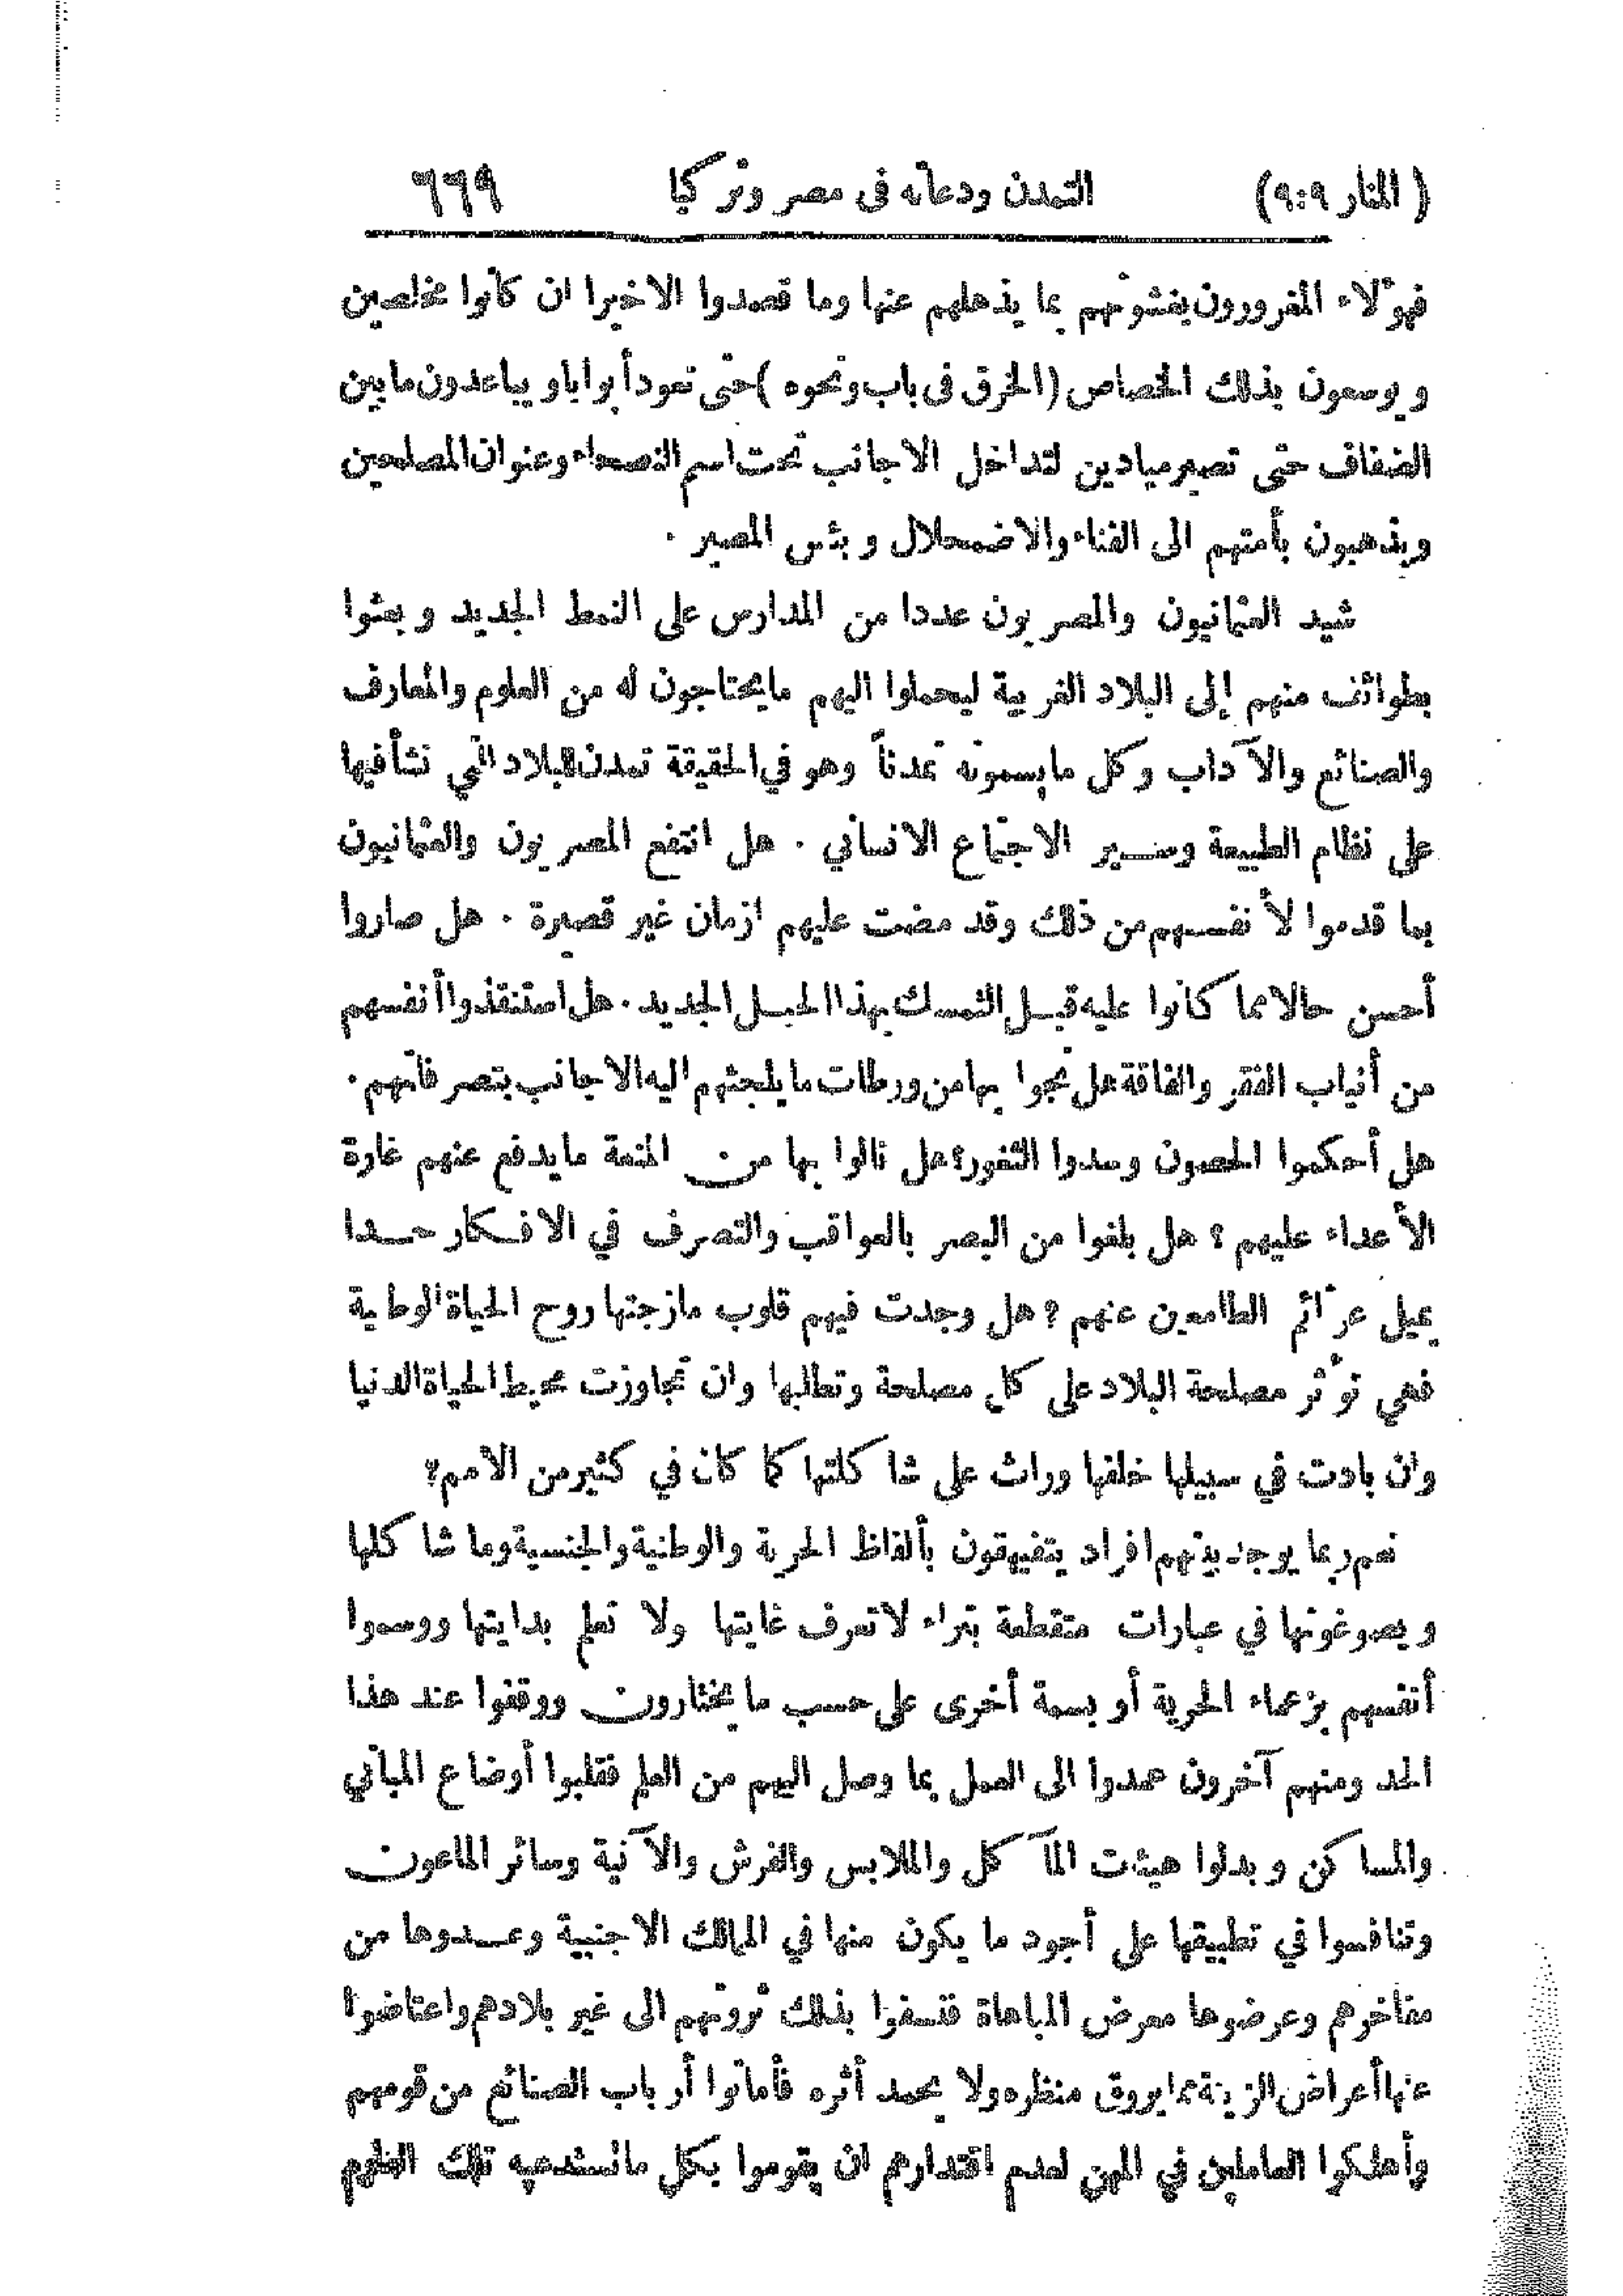 (المنار ٩:٩) التمدن ودعاته فى مصر وتركيا ٦٦٩
فهؤلاء المغرورون يغشونهم بما يذهلهم عنها وما قصدوا الا خيرا ان كانوا مخلصين
ويوسعون بذلك الخصاص (الخرق فى باب ونحوه) حتى تعود أبوابا ويباعدون ما بين
الضفاف حتى تصير ميادين لتداخل الاجانب تحت اسم النصحاء وعنوان المصلحين
ويذهبون بأمتهم الى الفناء والاضمحلال وبئس المصير .
شيد العثمانيون والمصريون عددا من المدارس على النمط الجديد وبعثوا
بطوائف منهم إلى البلاد الغربية ليحملوا اليهم ما يحتاجون له من العلوم والمعارف
والصنائع والآداب وكل ما يسمونه تمدناً وهو في الحقيقة تمدن للبلاد التي نشأ فيها
على نظام الطبيعة وسير الاجتماع الانساني . هل انتفع المصريون والعثمانيون
بما قدموا لأنفسهم من ذلك وقد مضت عليهم ازمان غير قصيرة . هل صاروا
أحسن حالا مما كانوا عليه قبل التمسك بهذا الحبل الجديد . هل استنقذوا أنفسهم
من أنياب الفقر والفاقة هل نجوا بها من ورطات ما يلجئهم اليه الاجانب بتصرفاتهم .
هل أحكموا الحصون وسدوا الثغور؟ هل نالوا بها من المنعة ما يدفع عنهم غارة
الأعداء عليهم ؟ هل بلغوا من البصر بالعواقب والتصرف في الافكار حدا
يميل عزائم الطامعين عنهم ؟ هل وجدت فيهم قلوب مازجتها روح الحياة الوطنية
فهي تؤثر مصلحة البلاد على كل مصلحة وتطلبها وان تجاوزت محيط الحياة الدنيا
وان بادت في سبيلها خلفها وراث على شاكلتها كما كان في كثير من الامم؟
نعم ربما يوجد بينهم افراد يتفيهقون بألفاظ الحرية والوطنية والجنسية وما شاكلها
ويصوغونها في عبارات متقطعة بتراء لا تعرف غايتها ولا تعلم بدايتها ووسموا
أنفسهم بزعماء الحرية أو بسمة أخرى على حسب ما يختارون ووقفوا عند هذا
الحد ومنهم آخرون عمدوا الى العمل بما وصل اليهم من العلم فقلبوا أوضاع المباني
والمساكن وبدلوا هيئات المآكل والملابس والفرش والآنية وسائر الماعون
وتنافسوا في تطبيقها على أجود ما يكون منها في الممالك الاجنبية وعدوها من
مفاخرهم وعرضوها معرض المباهاة فنسفوا بذلك ثروتهم الى غير بلادهم واعتاضوا
عنها أعراض الزينة مما يروق منظره ولا يحمد أثره فأماتوا أرباب الصنائع من قومهم
وأهلكوا العاملين في المهن لعدم اقتدارهم ان يقوموا بكل ما تستدعيه تلك العلوم